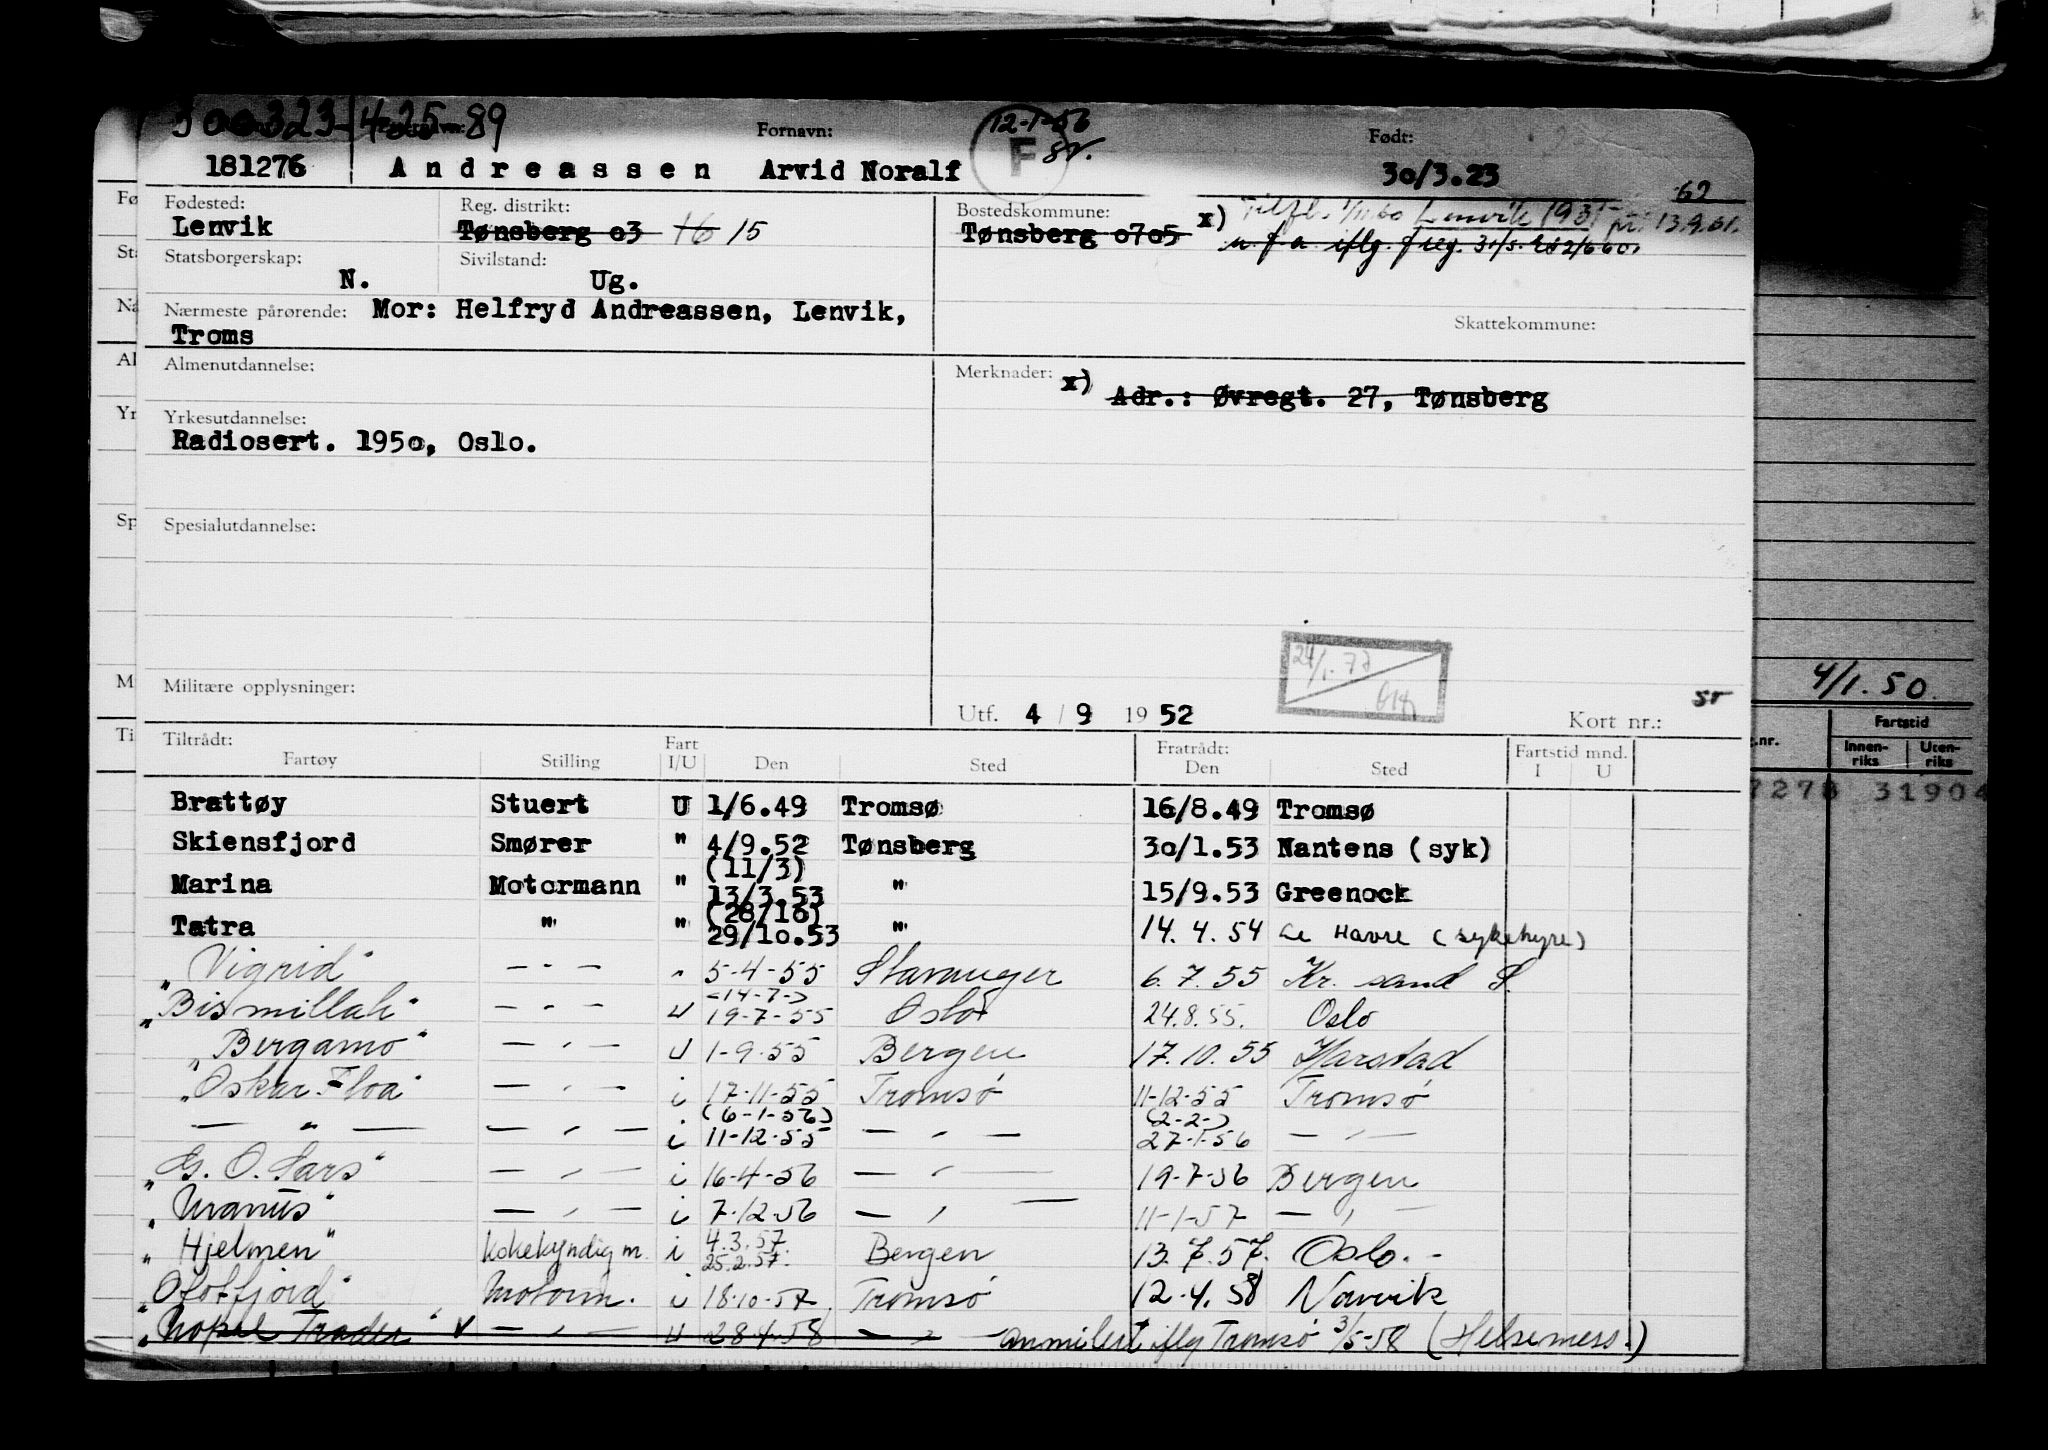 300323 42589
Fornavn: 12-1-56 Født:
181276 Andreassen Arvid Noralf F 30/3.23
Fødested: Reg. distrikt: Bostedskommune: x) Tilfl. 1/11 60 Lenvik 1931 13.9.61.
Lenvik Tønsberg 03 16 15 Tønsberg 0705
Statsborgerskap: Sivilstand:
N. Ug.
Nærmeste pårørende: Mor: Helfryd Andreassen, Lenvik,
Troms
Skattekommune:
Almenutdannelse: Merknader: x)
Adr.: Øvregt. 27, Tønsberg
Yrkesutdannelse:
Radiosert. 1950, Oslo.
Spesialutdannelse:
24/1.77
Militære opplysninger:
4/1.50.
Utf. 4 / 9 1952 Kort nr.:
Tiltrådt: Fart Fratrådt: Fartstid mnd.
Fartøy Stilling I/U Den Sted Den Sted I U
g.nr. Fartstid
Innen-riks Uten-riks
Brattøy Stuert U 1/6.49 Tromsø 16/8.49 Tromsø
Skiensfjord Smører " 4/9.52 Tønsberg 30/1.53 Nantens (syk)
(11/3)
Marina Motormann " 13/3.53 " 15/9.53 Greenock
(28/10)
Tatra " " 29/10.53 " 14.4.54 Le Havre (sykehyre)
"Vigrid" — " — " 5-4-55 Stavanger 6.7.55 Kr. sand S.
(14-7-)
"Bismillah" — " — U 19-7-55 Oslo 24.8.55. Oslo
"Bergamo" — " — U 1-9-55 Bergen 17.10.55 Harstad
"Oskar Floa" — " — i 17-11-55 Tromsø 11-12-55 Tromsø
(6-1-56) (2-2-)
— " — — " — i 11-12-55 — " — 27-1-56 — " —
"G. O. Sars" — " — i 16-4-56 — " — 19-7-56 Bergen
"Uranus" — " — i 7-12-56 — " — 11-1-57 — " —
"Hjelmen" kokekyndig m. i 4.3.57. Bergen 13.7.57. Oslo.
25.2.57.
"Ofotfjord" motorm. i 18-10-57 Tromsø 12.4.58 Narvik
"Nopal Trader" — " — U 28-4-58 — " — anmulert iflg Tromsø 3/5-58 (Helsemess.)